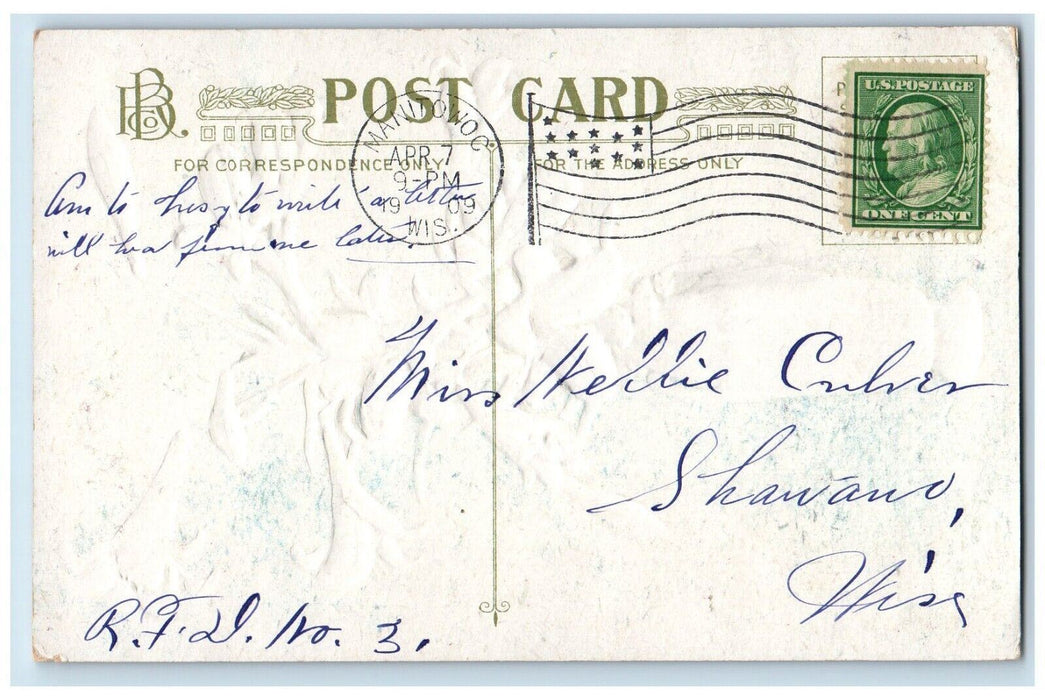 BB Co.
POST CARD
FOR CORRESPONDENCE ONLY
FOR THE ADDRESS ONLY
MANITOWOC
APR 7
9-PM
1909
WIS.
U.S. POSTAGE
ONE CENT
Am to busy to write a letter
will hear from me later.
Miss Nellie Culver
Shawano,
Wis
R.F.D. No. 3.